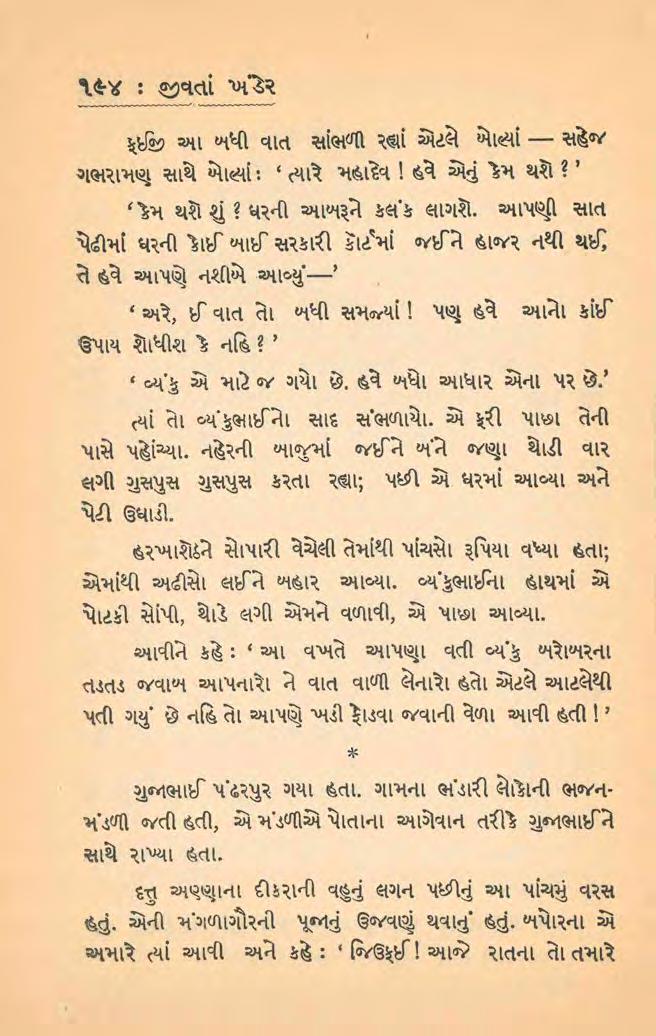 ૧૯૪ : જીવતાં ખંડેર
ફઈજી આ બધી વાત સાંભળી રહ્યાં એટલે બોલ્યાં — સહેજ
ગભરામણ સાથે બોલ્યાં : ‘ ત્યારે મહાદેવ ! હવે એનું કેમ થશે ? ’
‘ કેમ થશે શું ? ઘરની આબરૂને કલંક લાગશે. આપણી સાત
પેઢીમાં ઘરની કોઈ બાઈ સરકારી કૉર્ટમાં જઈને હાજર નથી થઈ,
તે હવે આપણે નશીબે આવ્યું—’
‘ અરે, ઈ વાત તો બધી સમજ્યાં ! પણ હવે આનો કાંઈ
ઉપાય શોધીશ કે નહિ ? ’
‘ વ્યંકુ એ માટે જ ગયો છે. હવે બધો આધાર એના પર છે.’
ત્યાં તો વ્યંકુભાઈનો સાદ સંભળાયો. એ ફરી પાછા તેની
પાસે પહોંચ્યા. નહેરની બાજુમાં જઈને બંને જણા થોડી વાર
લગી ગુસપુસ ગુસપુસ કરતા રહ્યા; પછી એ ઘરમાં આવ્યા અને
પેટી ઉઘાડી.
હરખાશેઠને સોપારી વેચેલી તેમાંથી પાંચસો રૂપિયા વધ્યા હતા;
એમાંથી અઢીસો લઈને બહાર આવ્યા. વ્યંકુભાઈના હાથમાં એ
પોટકી સોંપી, થોડે લગી એમને વળાવી, એ પાછા આવ્યા.
આવીને કહે : ‘ આ વખતે આપણા વતી વ્યંકુ બરોબરના
તડતડ જવાબ આપનારો ને વાત વાળી લેનારો હતો એટલે આટલેથી
પતી ગયું છે નહિ તો આપણે ખડી ફોડવા જવાની વેળા આવી હતી ! ’
*
ગુજાભાઈ પંઢરપુર ગયા હતા. ગામના ભંડારી લોકોની ભજન-
મંડળી જતી હતી, એ મંડળીએ પોતાના આગેવાન તરીકે ગુજાભાઈને
સાથે રાખ્યા હતા.
દત્તુ અણ્ણાના દીકરાની વહુનું લગન પછીનું આ પાંચમું વરસ
હતું. એની મંગળાગૌરની પૂજાનું ઉજવણું થવાનું હતું. બપોરના એ
અમારે ત્યાં આવી અને કહે : ‘ જિઉફઈ ! આજે રાતના તો તમારે